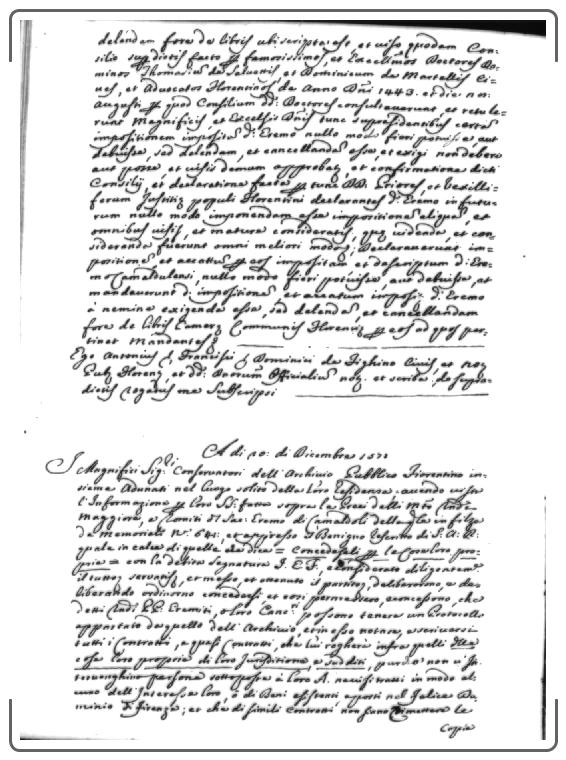 delendam fore de libris ubi scripta est, et viso quodam Con-
silio sup. dictis facto p famosissimos, et Excell.mos Doctores Do-
minos Thomasium de Salvettis, et Dominicum de Martellis Ci-
ves, et Advocatos Florentinos de Anno Dñi 1443. et die
Augusti p quod Consilium dd. Doctores consuluerunt, et retule-
runt Magnificis et Excelsis Dñis tunc
impositionem d. Eremo nullo modo fieri potuisse, aut
debuisse, sed delendam, et cancellandam esse, et exigi non debere
aut posse, et visis demum et confirmatione dicti
Consilij, et declaratione facta p tunc DD. Priores, et Vexilli-
ferum Justitiæ populi Florentini declarantes d. Eremo in futu-
rum nullo modo imponendam esse impositionem aliquam, et
omnibus visis, et mature consideratis, quæ videnda et con-
sideranda fuerunt omni meliori modo Declaraverunt im-
positionem et p eos impositam et descriptam d. Ere-
mo Camaldulensi nullo modo fieri potuisse, aut debuisse, et
mandaverunt d. impositionem, et d. Eremo
à nemine exigenda esse, sed delendam, et cancellandam
fore de Libris Cameræ Communis Florentiæ p eos ad quos per-
tinet Mandantes
Ego Antonius Francisci Dominici de Fighino Civis, et Not.
Florent. et dd. Officialium not. et scriba de supra-
dictis rogatus me Subscripsi
A di 20: di Dicembre 157
I Magnifici Sig.ri Conservatori dell'Archivio Pubblico Fiorentino in-
sieme Adunati nel luogo solito della loro residenza avendo vista
l'Informazione p loro SS. fatta sopra le Preci delli Mto Rndi
Maggiore, e Romiti del Sac: Eremo di Camaldoli in filza
de Memoriali N.o 641: et appresso il Benigno Rescritto di S. A. S:
quale in calce di quelle dice = Concedesili p le Cose loro pro-
prie = con la detta Segnatura e considerato diligentem.te
il tutto, servatis, et messo, et ottenuto il partito, deliberorono, e de-
liberando ordinorno concedessi et cosi permessero, e concessono, che
detti Rndi PP. Eremiti, o loro Canc.ri possono tenere un Protocollo
appartato da quello dell'Archivio, et in esso notare, e scrivervi
tutti i Contratti, e quasi Contratti, che lui rogherà infra quelli
cose loro proprie di loro Jurisditione e sudditi, purche non v'in-
tervenghino persone sottoposte à loro A. ne vi si tratti in modo al-
cuno dell'Interesse loro, ò di Beni esistenti e posti nel felice Do-
minio di Firenze; et che di simili contratti non siano rimettere le
Copie